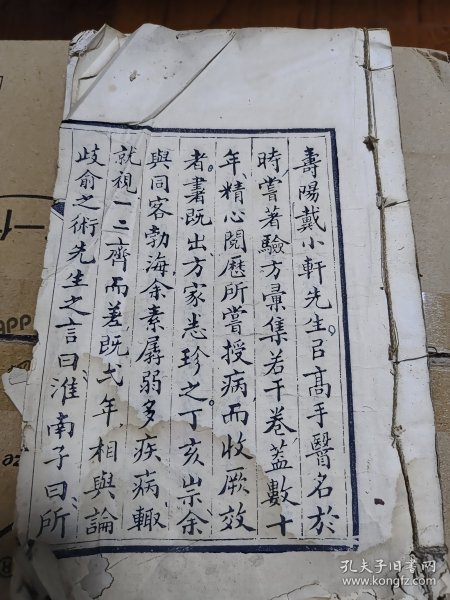 壽陽戴小軒先生㠯高手醫名於
時嘗著驗方彙集若干卷蓋數十
年精心閱歷所嘗授病而收厥效
者書既出方家悉珍之丁亥余
與同客勃海余素孱弱多疾病輒
就視一二齊而差既弍年相與論
歧俞之術先生之言曰淮南子曰所
孔夫子旧书网
www.kongfz.com